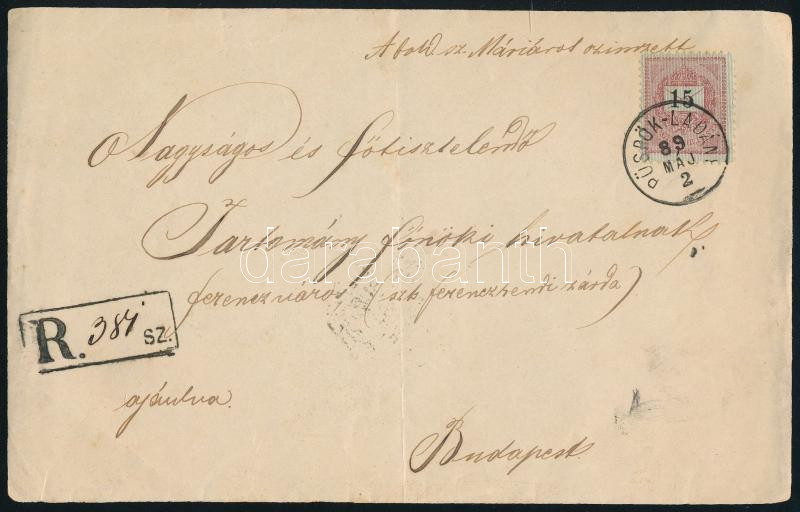 A bold. sz. Máriáról czimzett
15
PÜSPÖK-LADÁNY
89
MÁJ
2
Nagyságos és főtisztelendő
Tartomány főnöki hivatalnak
darabanth
ferenczváros szt. ferenczrendi zárda)
R. 381 SZ.
ajánlva.
Budapest.